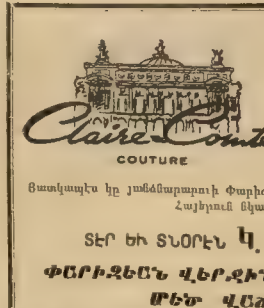 Claire Comte
COUTURE
Յատկապէս կը յանձնարարուի Փարիզ
Հայերուն
ՏԷՐ ԵՒ ՏՆՕՐԷՆ Կ.
ՓԱՐԻԶԵԱՆ ՎԵՐՋԻՆ
ՄԵԾ